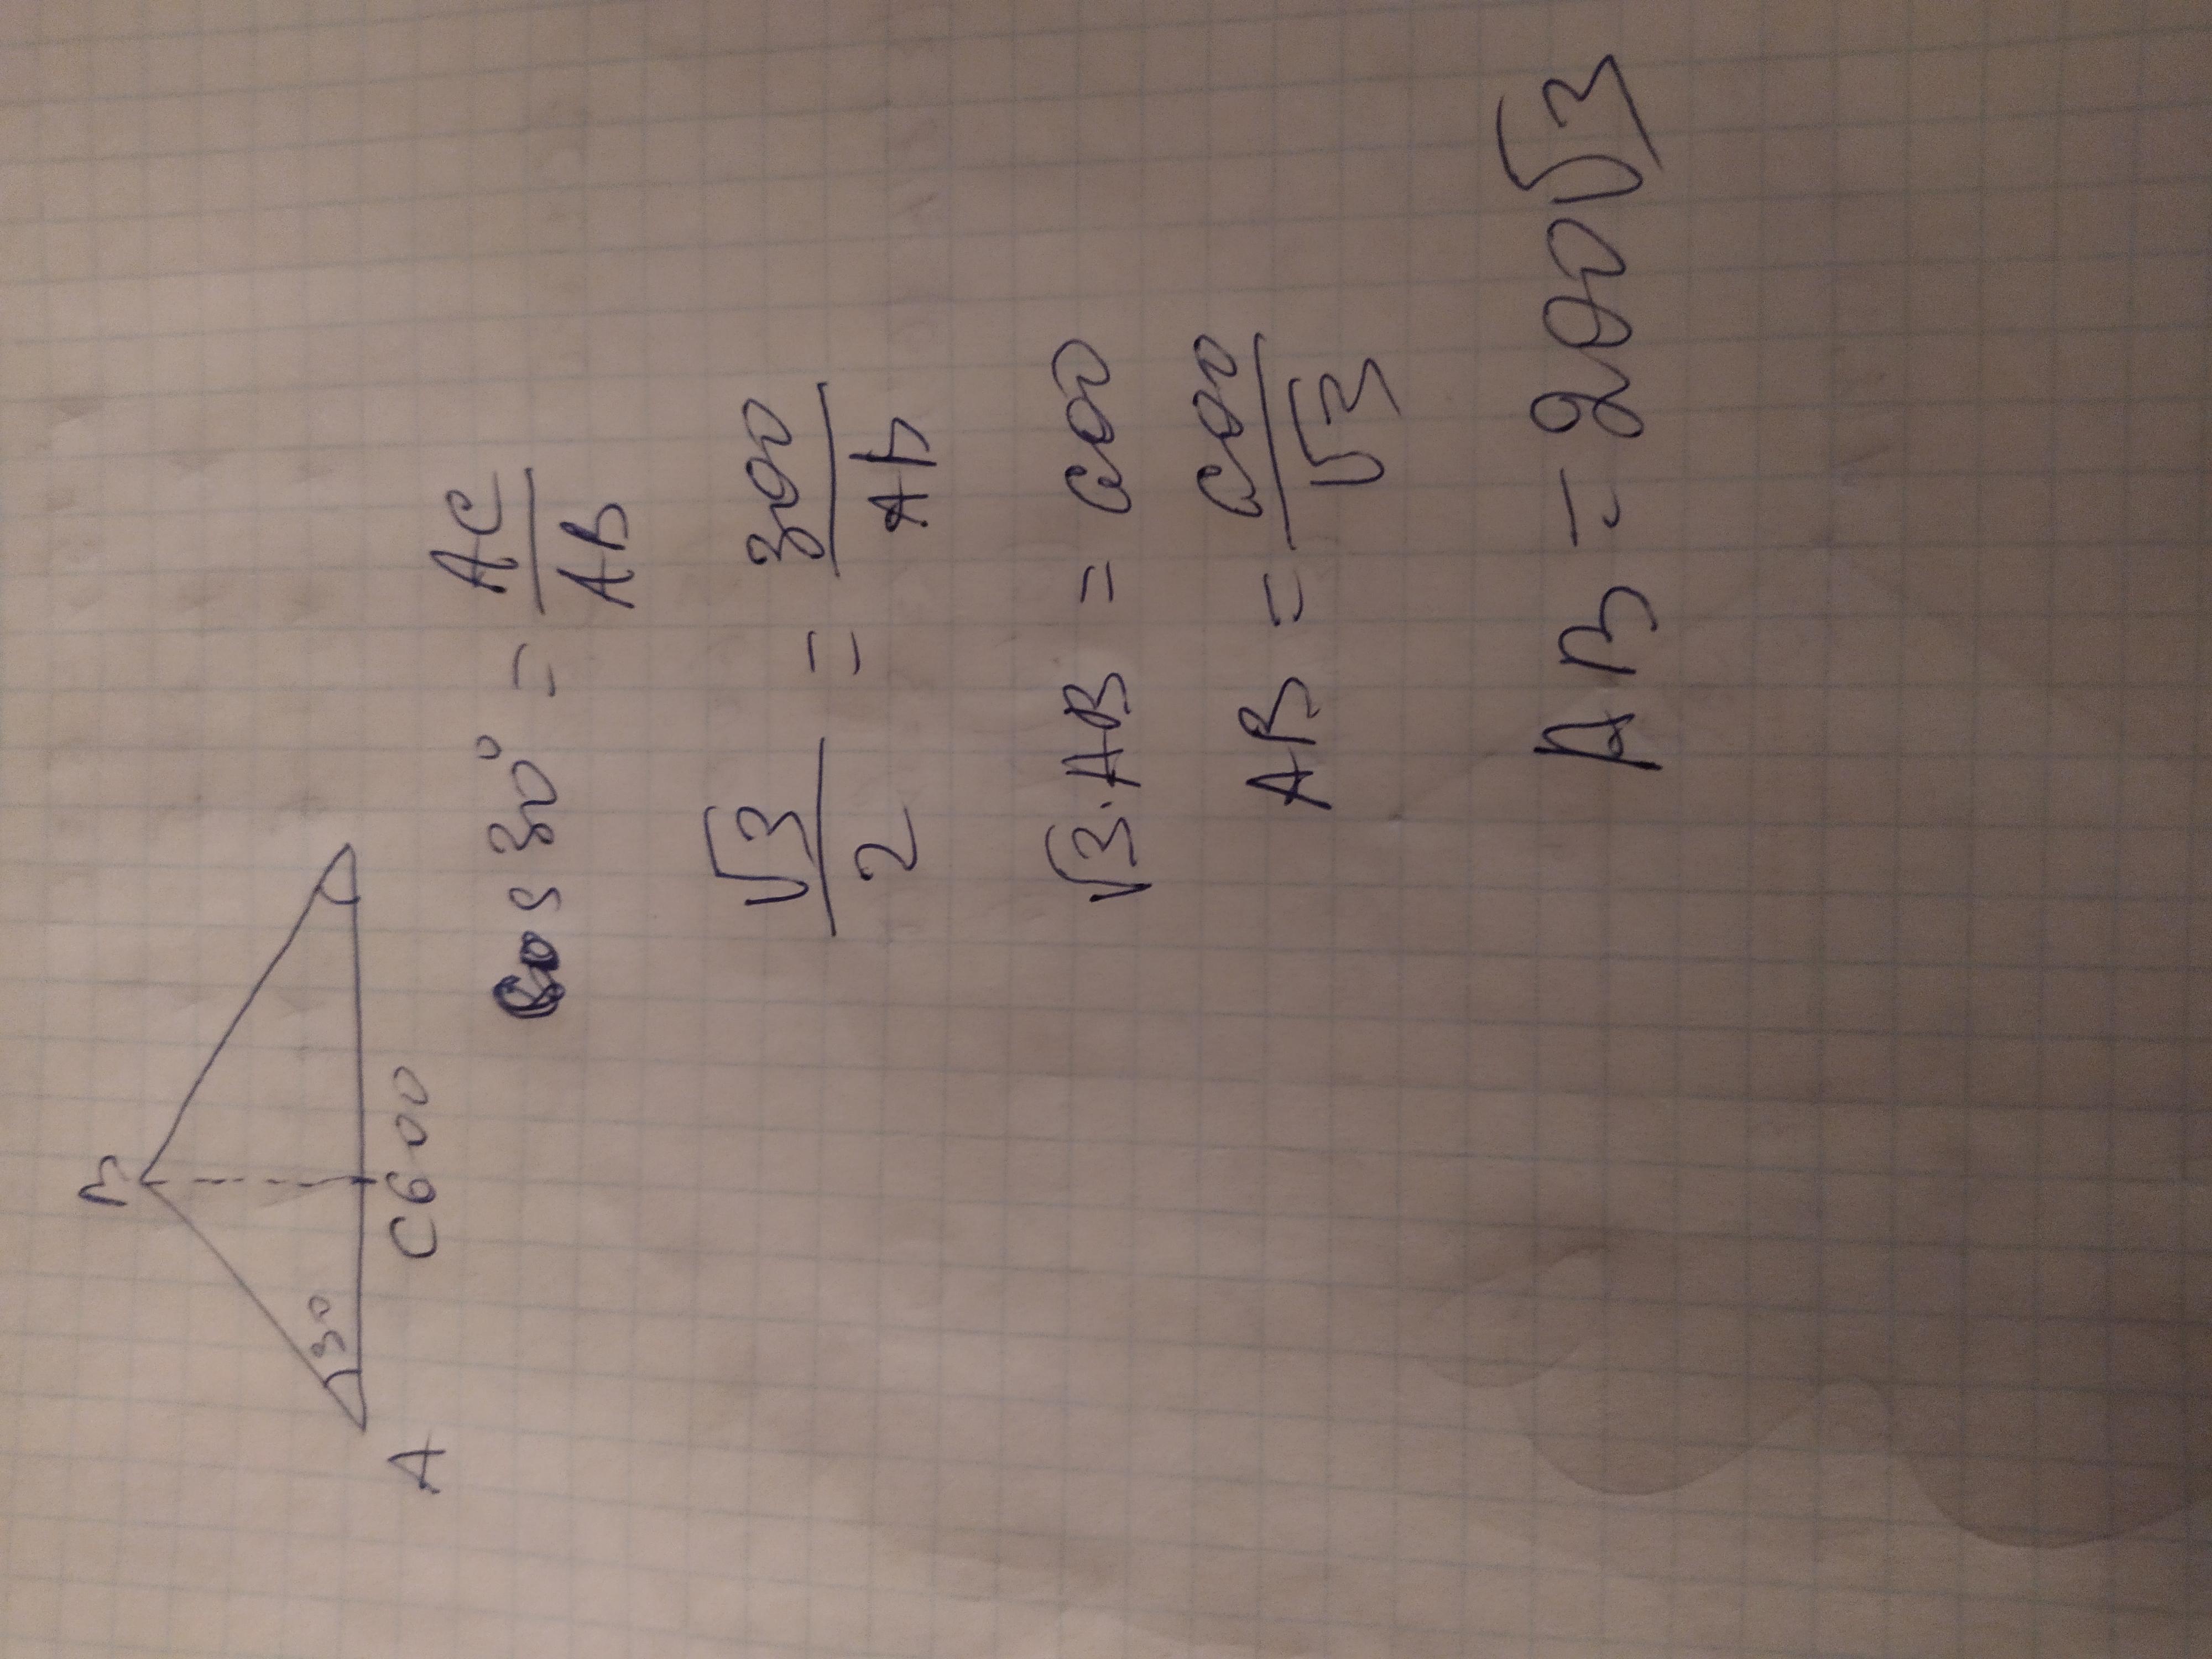 B
30
A C 600
cos 30° = AC/AB
√3/2 = 300/AB
√3 · AB = 600
AB = 600/√3
AB = 200√3